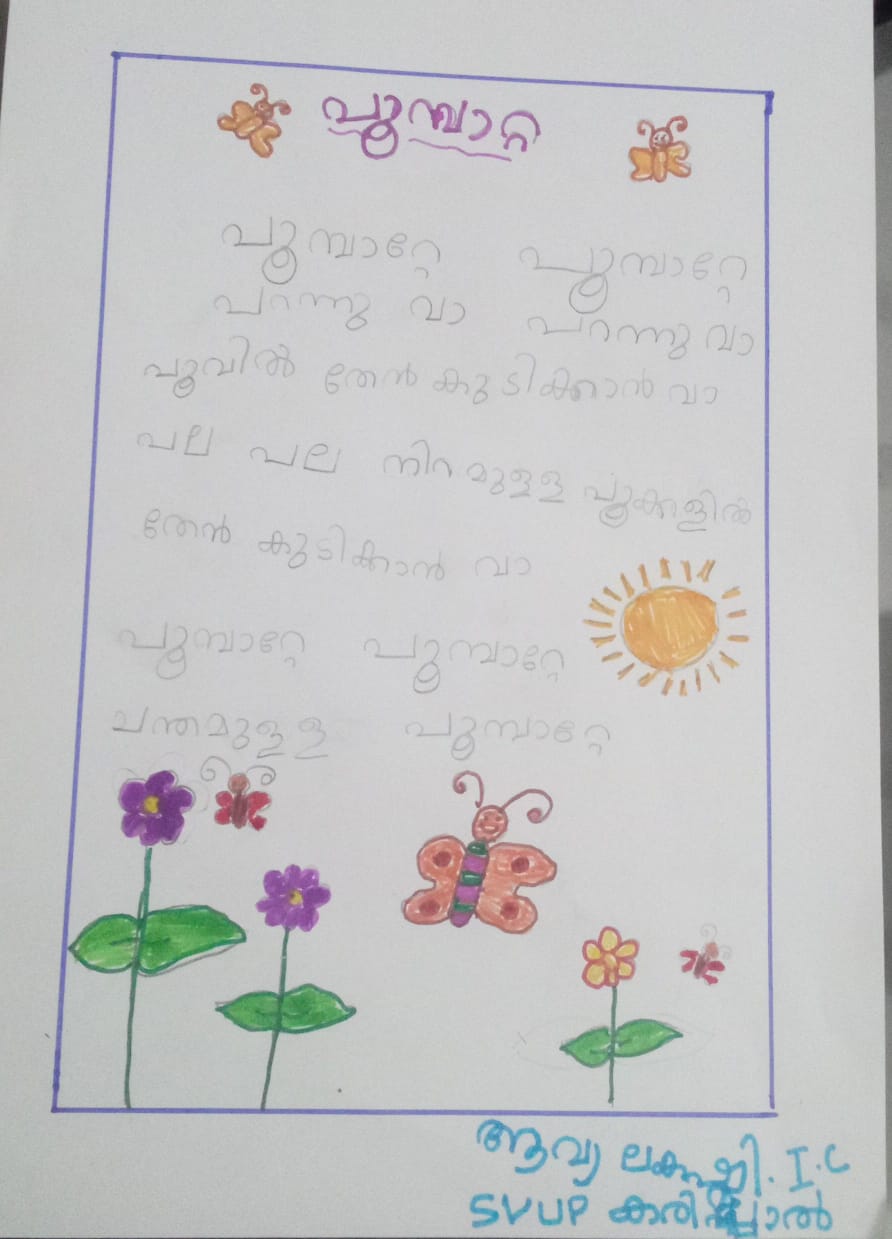 പൂമ്പാറ്റ
പൂമ്പാറ്റേ പൂമ്പാറ്റേ
പറന്നു വാ പറന്നു വാ
പൂവിൽ തേൻ കുടിക്കാൻ വാ
പല പല നിറമുള്ള പൂക്കളിൽ
തേൻ കുടിക്കാൻ വാ
പൂമ്പാറ്റേ പൂമ്പാറ്റേ
ചന്തമുള്ള പൂമ്പാറ്റേ
ആവ്യ ലക്ഷ്മി. I.C
SVUP